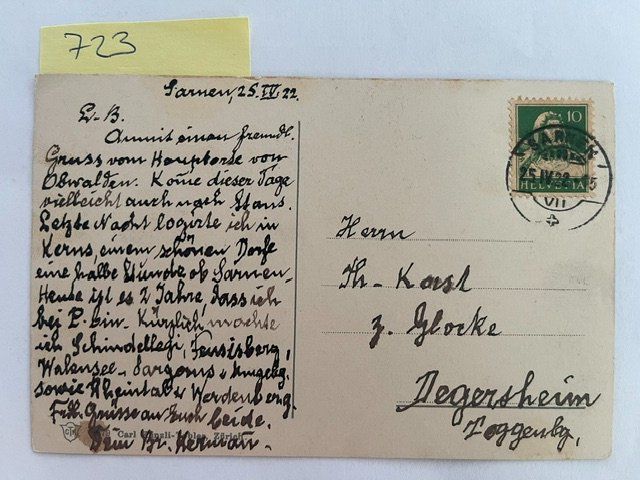 723
Sarnen, 25. IV. 22.
L. B.
Anmit einen freundl.
Gruss vom Hauptorte von
Obwalden. Kome dieser Tage
vielleicht auch nach Stans.
Letzte Nacht logirte ich in
Kerns, einem schönen Dorfe
eine halbe Stunde ob Sarnen.
Heute ist es 2 Jahre, dass ich
bei P. bin. Kürzlich machte
ich Schindellegi, Feusisberg,
Walensee, Sargans & Umgebg.
sowie Rheintal & Werdenberg.
Frdl. Grüsse an Euch beide.
Dein Br. Herman.
Carl Künzli-Tobler, Zürich
10
HELVETIA
SARNEN
25.IV.22
VII
Herrn
Th. Kast
z. Glocke
Degersheim
Toggenbg.